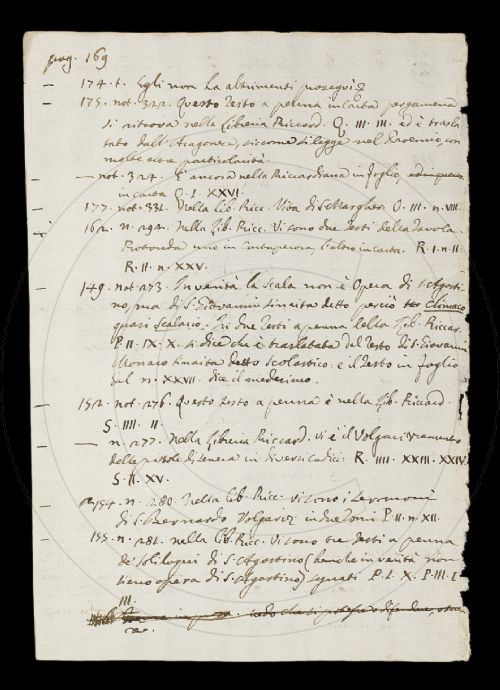 pag. 169
174. t. Egli non ha altrimenti
175. not. 322. Questo testo a penna in Carta pergamena
si ritrova nella Libreria Riccard. Q. III. III. ed è trasla
tato dall'Aragonese, siccome si legge nel Proemio con
molte altre particolarità.
— not. 324. È ancora nella Riccardiana in foglio,
in carta Q. I. XXVI.
177. not. 331. Nella Lib. Ricc. Vita di S. Margher. O. III. n. VIII.
162. n. 294. Nella Lib. Ricc. Vi sono due Testi della Tavola
Rotonda uno in Cartapecora, l'altro in carta. R. I. n. II.
R. II. n. XXV.
149. not. 273. In verità la scala non è Opera di S. Agosti
no, ma di S. Giovanni Sinaita detto perciò Climaco
quasi Scalario. In due Testi a penna della Lib. Riccar.
P. II. IX. X. si dice che è traslatata dal Testo di S. Giovanni
Monaco Sinaita detto Scolastico: e il Testo in foglio
del n. XXVII. dice il medesimo.
152. not. 276. Questo testo a penna è nella Lib. Riccard.
S. IIII. II.
— n. 277. Nella Libreria Riccard. vi è il Volgarizzamento
delle pistole di Seneca in diversi codici. R. IIII. XXIII. XXIV.
S. II. XV.
154. n. 280. Nella Lib. Ricc. vi sono i Sermoni
di S. Bernardo Volgariz. in due Tomi P. II. n. XII.
155. n. 281. nella Lib. Ricc. Vi sono tre Testi a penna
de' Soliloqui di S. Agostino (benche in verità non
sieno opera di S. Agostino) segnati P. I. X. P. III. I
III.